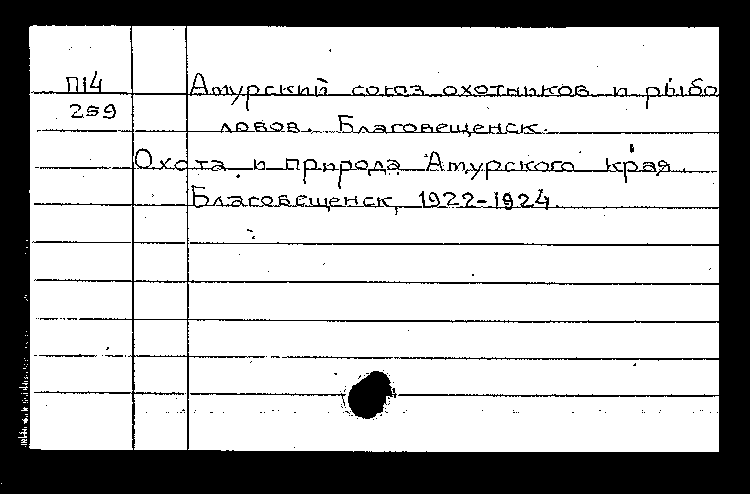 П14 Амурский союз охотников и рыбо
259 ловов. Благовещенск.
Охота и природа Амурского края.
Благовещенск, 1922-1924.